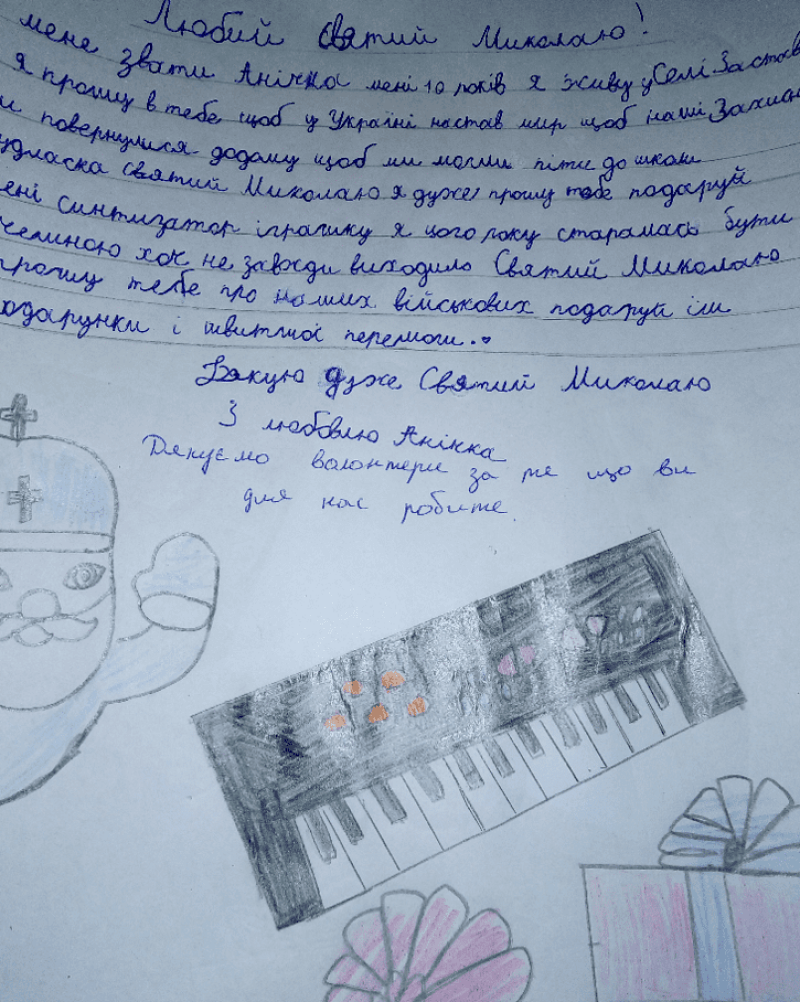 Любий святий Миколаю!
мене звати Анічка мені 10 років я живу у Селі Застав
я прошу в тебе щоб у Україні настав мир щоб наші Захисн
и повернулися додому щоб ми могли піти до школи
удласка святий Миколаю я дуже прошу тебе подаруй
ені синтизатор іграшку я цього року старалась бути
чемною хоч не завжди виходило Святий Миколаю
прошу тебе про наших військових подаруй їм
одарунки і швитчої перемоги.
Дякую дуже Святий Миколаю
З любовлю Анічка
Дякуємо волонтери за те що ви
для нас робите.